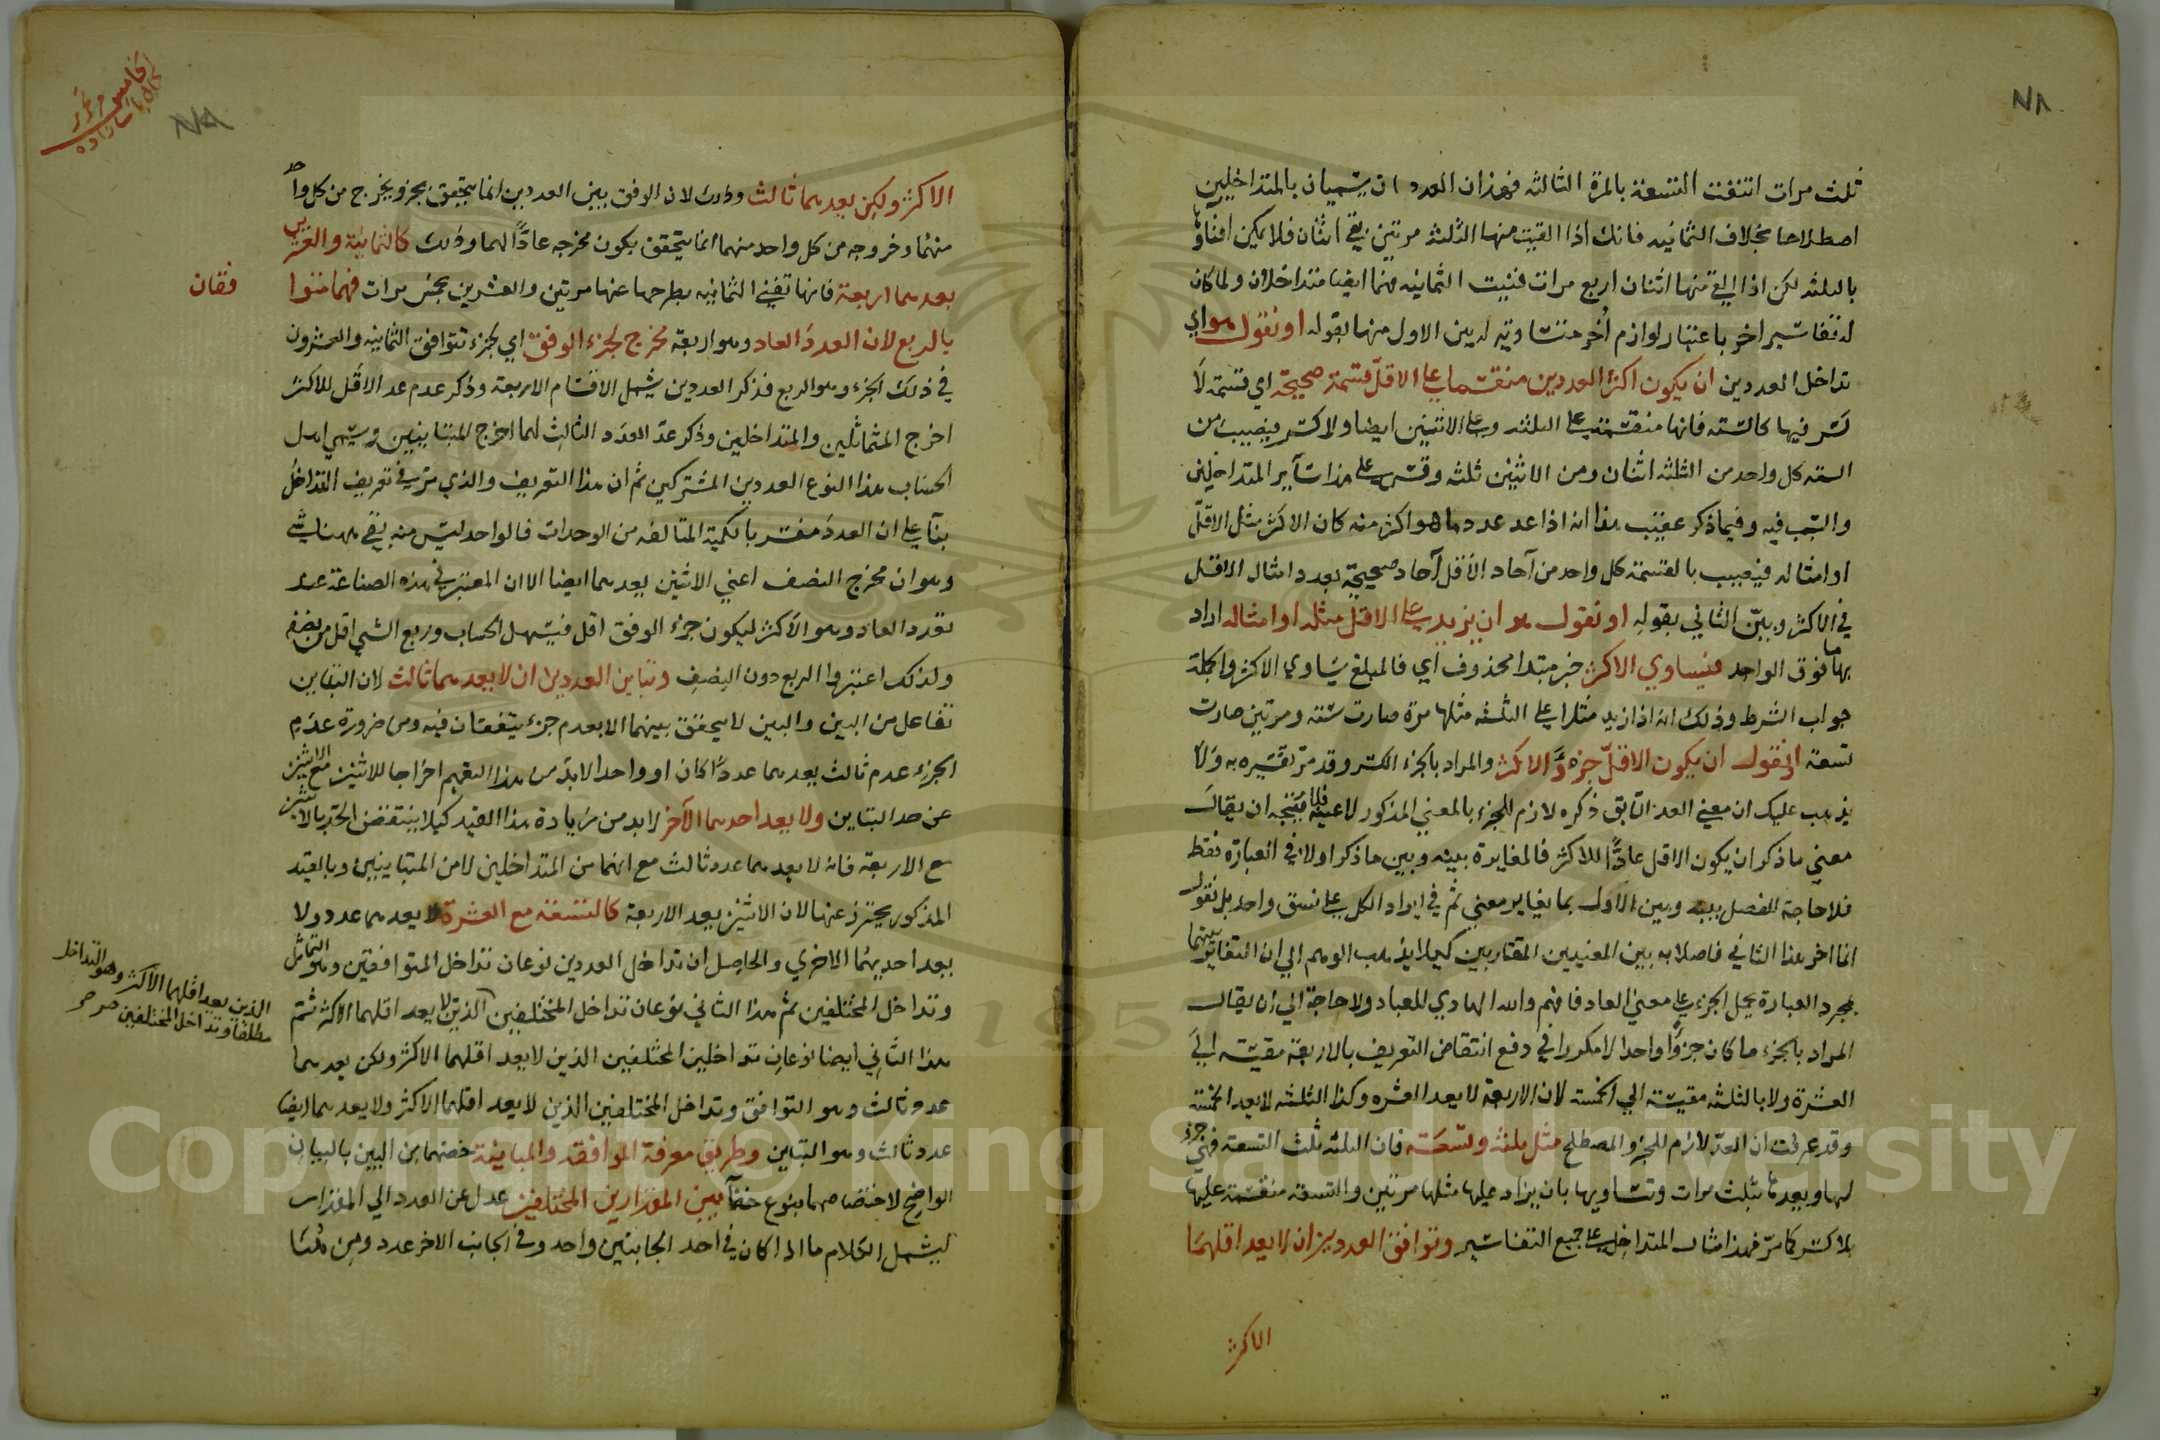 ثلث مرات انتفت التسعة بالمرة الثالثه فهذان العددان يسميان بالمتداخلين
اصطلاحا بخلاف الثمانيه فانك اذا القيت منها الثلثه مرتين بقي اثنان فلا يمكن افناؤها
بالثلثه لكن اذا القي منها اثنان اربع مرات فنيت الثمانيه فهما ايضا متداخلان ولما كان
له تفاسير اخر باعتبار لوازم أخر متساويه له بين الاول منها بقوله او نقول هو اي
تداخل العددين ان يكون اكثر العددين منقسما على الاقل قسمة صحيحة اي قسمة لا
كسر فيها كالسته فانها منقسمة على الثلثه وعلى الاثنين ايضا ولا كسر فيصيب من
السته كل واحد من الثلثه اثنان ومن الاثنين ثلثه وقس على هذا ساير المتداخلين
والسبب فيه وفيما ذكر عقيب هذا انه اذا عد عدد ما هو اكثر منه كان الاكثر مثل الاقل
او امثاله فيصيب بالقسمة كل واحد من آحاد الأقل آحاد صحيحة بعدد امثال الاقل
في الاكثر وبين الثاني بقوله او نقول هو ان يزيد على الاقل مثله او امثاله اراد
بها ما فوق الواحد فيساوي الاكثر خبر مبتدا محذوف اي فالمبلغ يساوي الاكثر والجملة
جواب الشرط وذلك انه اذا زيد مثلا على الثلثه مثلها مرة صارت ستة ومرتين صارت
تسعة او نقول ان يكون الاقل جزءا للاكثر والمراد بالجزء الكسر وقد مر تفسيره به ولا
يذهب عليك ان معنى العد السابق ذكره لازم للجزء بالمعنى المذكور لا عينه فلا يتجه ان يقال
معنى ما ذكر ان يكون الاقل عادًّا للاكثر فالمغايرة بينه وبين ما ذكر اولا في العبارة فقط
فلا حاجة للفصل بينه وبين الاول بما يغاير معنى ثم في ايراد الكل على نسق واحد بل نقول
انما اخر هذا الثاني فاصلا به بين المعنيين المتقاربين كيلا يذهب الوهم الى ان التغاير بينهما
بمجرد العبارة بحمل الجزء على معنى العاد فافهم والله الهادي للعباد ولا حاجة الى ان يقال
المراد بالجزء ما كان جزؤا واحدا لا مكررا في دفع انتقاض التعريف بالاربعة مقيسة الى
العشرة ولا بالثلثه مقيسة الى الخمسة لان الاربعة لا يعد العشره وكذا الثلثه لا يعد الخمسة
وقد عرفت ان العد لازم للجزء المصطلح مثل ثلثة وتسعة فان الثلثه ثلث التسعة فهي جزء
لها ويعدها بثلث مرات وتساويها بان يزاد عليها مثلها مرتين والتسعة منقسمة عليها
بلا كسر كما مر فهذا مثال المتداخل على جميع التفاسير وتوافق العددين ان لا يعد اقلهما
الاكثر
الاكثر ولكن يعدهما ثالث وذلك لان الوفق بين العددين انما يتحقق بجزء يخرج من كل واحد
منهما وخروجه من كل واحد منهما انما يتحقق بكون مخرجه عادًّا لهما وذلك كالثمانية والعشرين
يعدهما اربعة فانها تفني الثمانيه بطرحها عنها مرتين والعشرين بخمس مرات فهما متوا
فقان
بالربع لان العدد العاد وهو اربعة مخرج لجزء الوفق اي لجزء تتوافق الثمانيه والعشرون
في ذلك الجزء وهو الربع فذكر العددين يشمل الاقسام الاربعة وذكر عدم عد الاقل للاكثر
اخرج المتماثلين والمتداخلين وذكر عد العدد الثالث لهما اخرج المتباينين ويسمي اهل
الحساب هذا النوع العددين المشتركين ثم ان هذا التعريف والذي مر في تعريف التداخل
بناء على ان العدد مفسر بالكمية المتالفه من الوحدات فالواحد ليس منه بقي ههنا شي
وهو ان مخرج النصف اعني الاثنين يعدهما ايضا الا ان المعتبر في هذه الصناعة عند
تعدد العاد هو الاكثر ليكون جزء الوفق اقل فيسهل الحساب وربع الشي اقل من نصفه
ولذلك اعتبروا الربع دون النصف وتباين العددين ان لا يعدهما ثالث لان التباين
تفاعل من البين والبين لا يتحقق بينهما الا بعدم جزء يتفقان فيه ومن ضرورة عدم
الجزء عدم ثالث يعدهما عددا كان او واحدا لا بد من هذا التعميم اخراجا للاثنين مع الاثنين
عن حد التباين ولا يعد احدهما الآخر لا بد من زيادة هذا القيد كيلا ينتقض الحد بالاثنين
مع الاربعة فانه لا يعدهما عدد ثالث مع انهما من المتداخلين لا من المتباينين وبالقيد
المذكور يحترز عنها لان الاثنين يعد الاربعة كالتسعة مع العشرة لا يعدهما عدد ولا
يعد احديهما الاخرى والحاصل ان تداخل العددين نوعان تداخل المتوافقين وهو التماثل
وتداخل المختلفين ثم هذا الثاني نوعان تداخل المختلفين الذين لا يعد اقلهما الاكثر ثم
الذين يعد اقلهما الاكثر وهو التداخل
مطلقا وتداخل المختلفين صح صح
هذا الثاني ايضا نوعان تداخلين المختلفين الذين لا يعد اقلهما الاكثر ولكن يعدهما
عدد ثالث وهو التوافق وتداخل المختلفين الذين لا يعد اقلهما الاكثر ولا يعدهما ايضا
عدد ثالث وهو التباين وطريق معرفة الموافقة والمباينة خصهما من البين بالبيان
الواضح لاختصاصهما بنوع خفآ بين المقدارين المختلفين عدل عن العدد الى المقدار
ليشمل الكلام ما اذا كان في احد الجانبين واحد وفي الجانب الاخر عدد ومن هنا